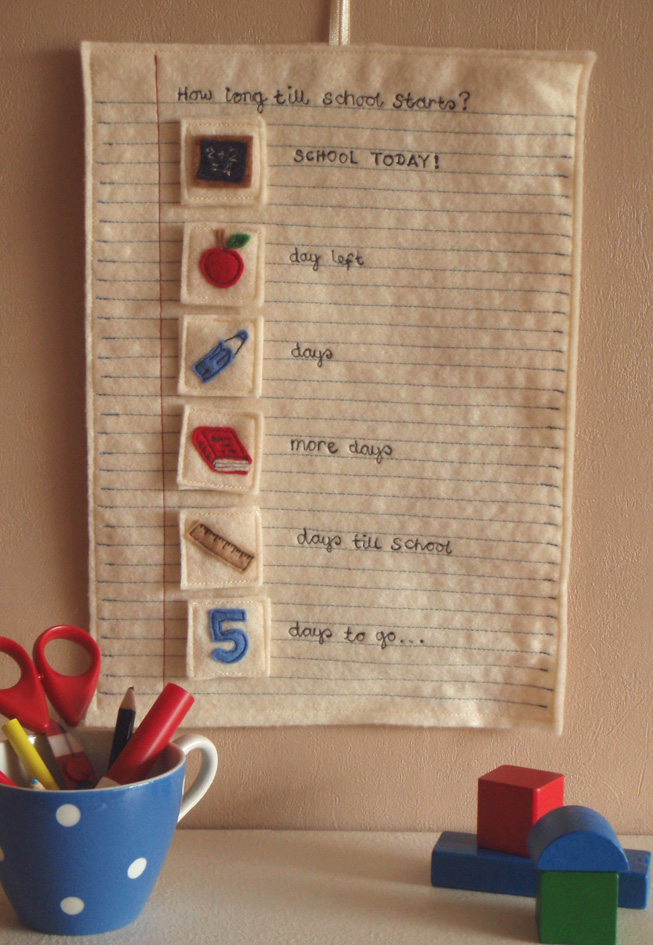 How long till school starts?
2+2
=4
SCHOOL TODAY!
day left
days
more days
days till school
5 days to go...